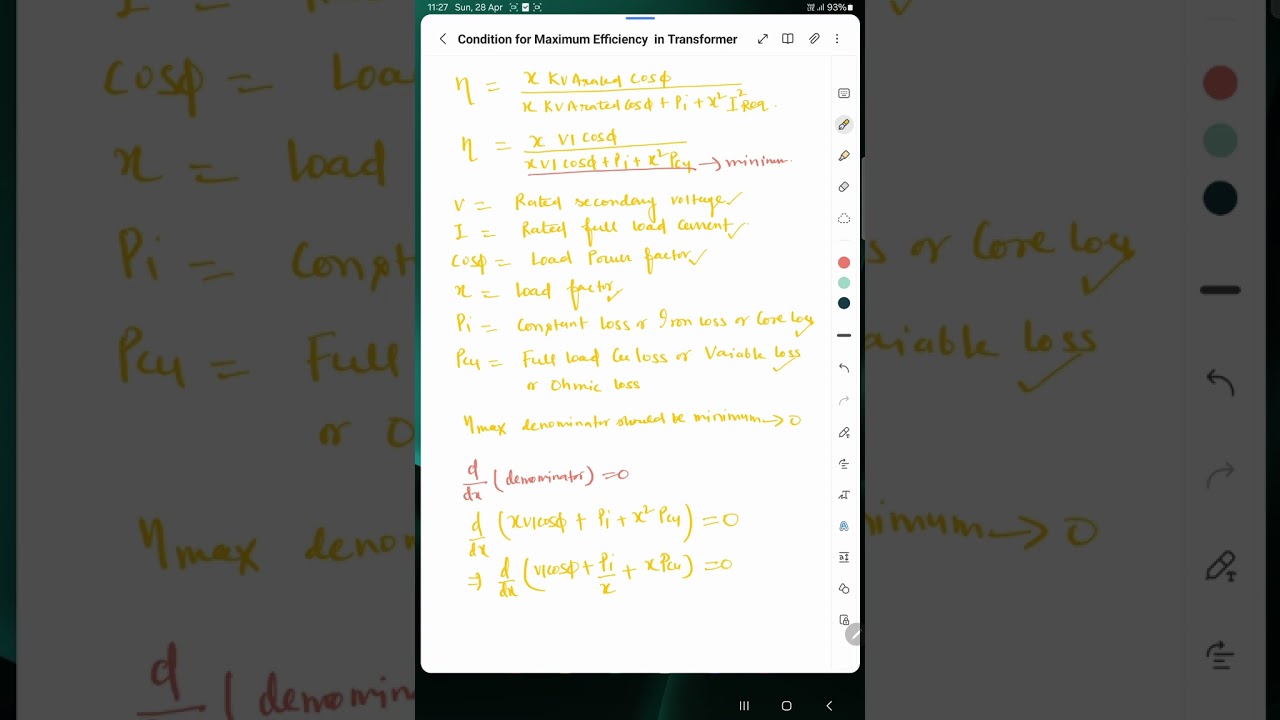 11:27 Sun, 28 Apr 93%
Condition for Maximum Efficiency in Transformer
η = x KVArated cosϕ / x KVArated cosϕ + Pi + x² I² Req.
η = x VI cosϕ / x VI cosϕ + Pi + x² Pcu → minimum.
V = Rated secondary voltage ✓
I = Rated full load current ✓
cosϕ = Load Power factor ✓
x = Load factor ✓
Pi = Constant Loss or Iron Loss or Core Loss ✓
Pcu = Full load Cu loss or Variable Loss ✓
or Ohmic loss
ηmax denominator should be minimum → 0
d/dx (denominator) = 0
d/dx (x VI cosϕ + Pi + x² Pcu) = 0
⇒ d/dx (VI cosϕ + Pi/x + x Pcu) = 0